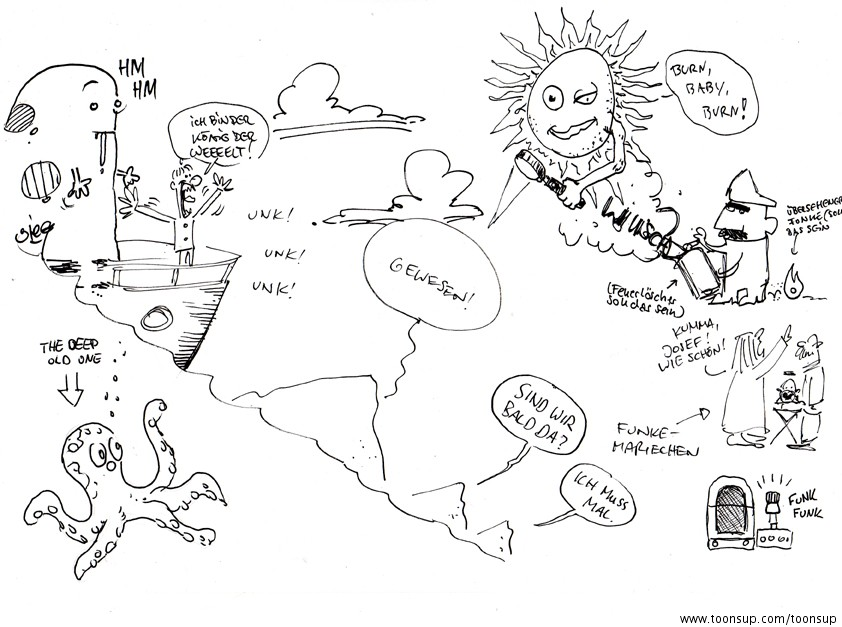 HM
HM
ICH BIN DER
KÖNIG DER
WEEEELT!
BURN,
BABY,
BURN!
UNK!
UNK!
UNK!
GEWESEN!
WUUSCH
ÜBERSEHENER
FUNKE (SOLL
DAS SEIN
(Feuerlöscher
soll das sein)
KUMMA,
JOSEF!
WIE SCHÖN!
THE DEEP
OLD ONE
SIND WIR
BALD DA?
FUNKE-
MARIECHEN
ICH MUSS
MAL.
FUNK
FUNK
www.toonsup.com/toonsup